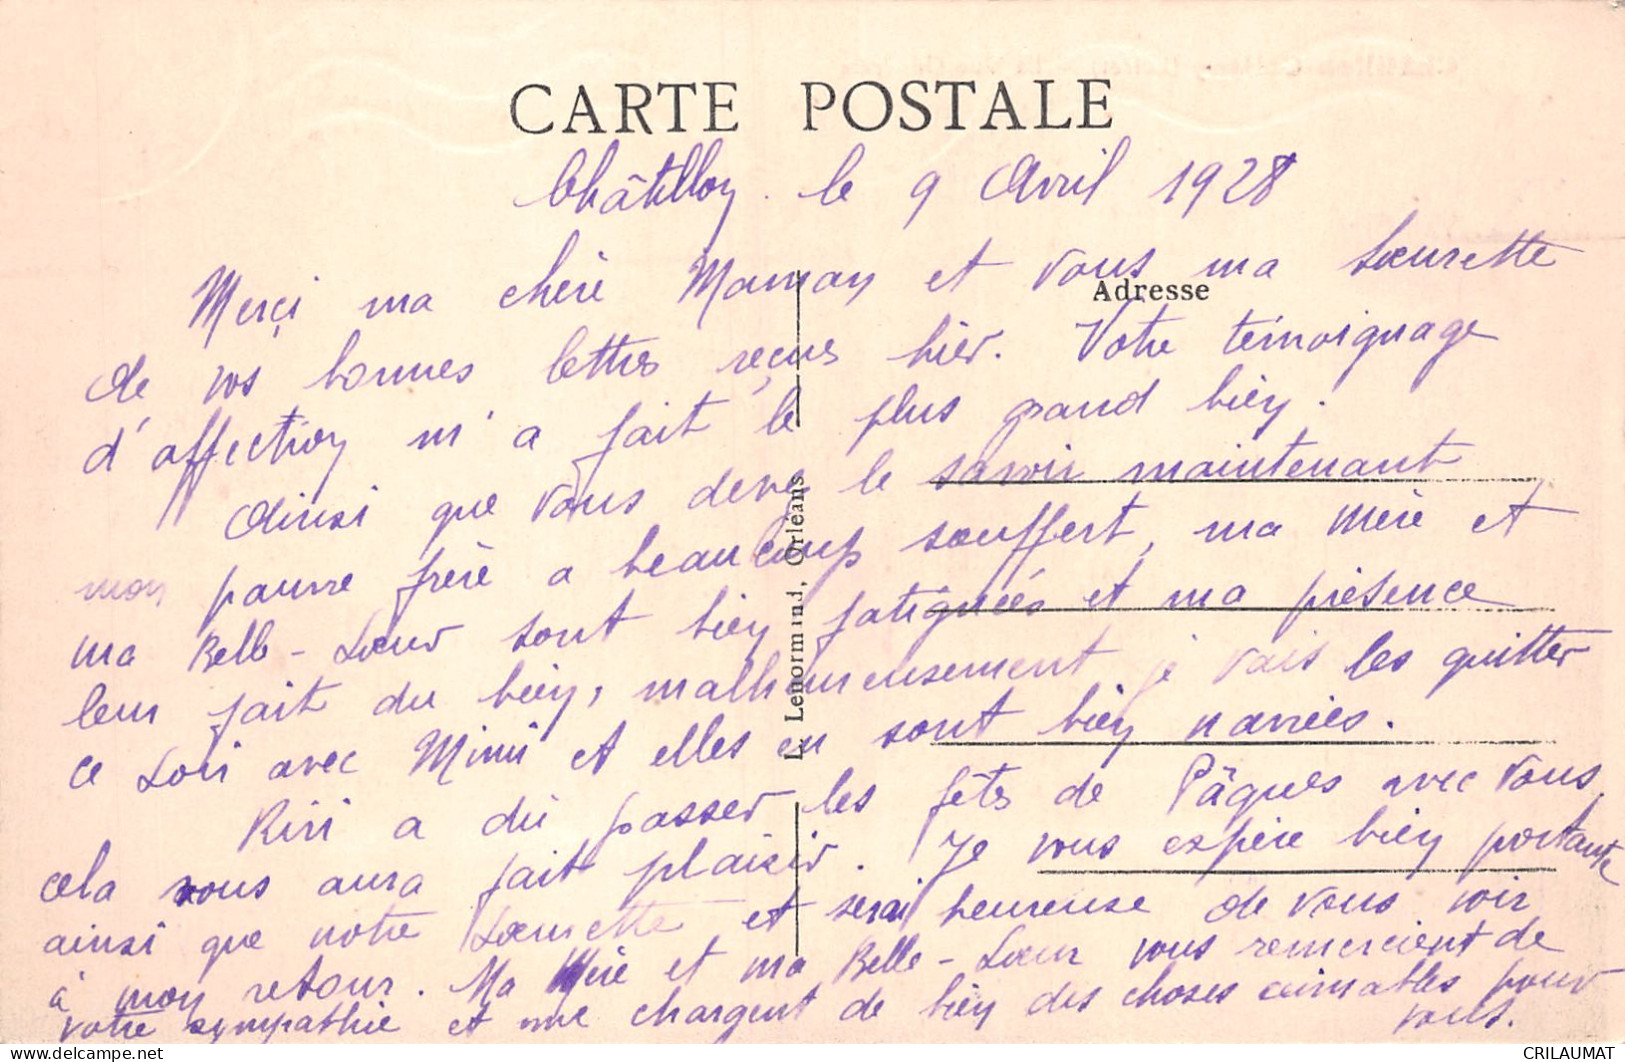 CARTE POSTALE
Châtillon le 9 Avril 1928
Merçi ma chère Maman et vous ma Soeurette
Adresse
de vos bonnes lettres reçues hier. Votre témoignage
d'affection m'a fait le plus grand bien.
Ainsi que vous devez le savoir maintenant
mon pauvre frère a beaucoup souffert, ma Mère et
ma Belle-Soeur sont bien fatiguées et ma présence
leur fait du bien, malheureusement je vais les quitter
ce Soir avec Mimi et elles en sont bien navrées.
Riri a dû passer les fêtes de Pâques avec vous,
cela vous aura fait plaisir. Je vous espère bien portante
ainsi que notre Soeurette et serai heureuse de vous voir
à mon retour. Ma Mère et ma Belle-Soeur vous remercient de
votre sympathie et me chargent de bien des choses aimables pour
vous.
L. Lenormand, Orléans
CRILAUMAT